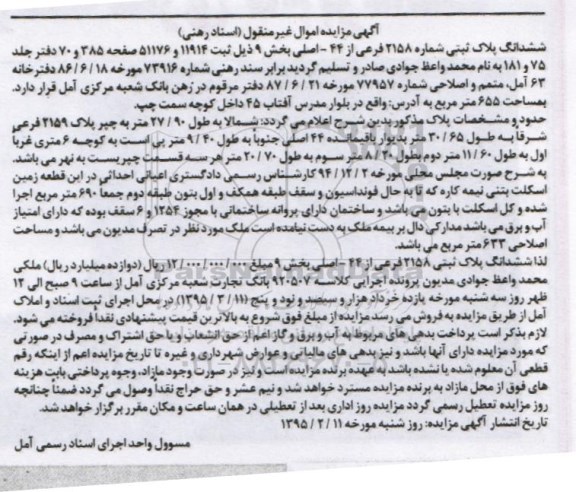 آگهی مزایده اموال غیرمنقول (اسناد رهنی)
ششدانگ پلاک ثبتی شماره ۲۱۵۸ فرعی از ۴۴ - اصلی بخش ۹ ذیل ثبت ۱۱۹۱۴ و ۵۱۱۷۶ صفحه ۳۸۵ و ۷۰ دفتر جلد
۷۵ و ۱۸۱ به نام محمد واعظ جوادی صادر و تسلیم گردید برابر سند رهنی شماره ۷۳۹۱۶ مورخه ۸۶/۶/۱۸ دفترخانه
۶۳ آمل، متمم و اصلاحی شماره ۷۷۹۵۷ مورخه ۸۷/۶/۲۱ دفتر مرقوم در رهن بانک شعبه مرکزی آمل قرار دارد.
بمساحت ۶۵۵ متر مربع به آدرس: واقع در بلوار مدرس آفتاب ۴۵ داخل کوچه سمت چپ.
حدود و مشخصات پلاک مذکور بدین شرح اعلام می گردد: شمالا به طول ۲۷/۹۰ متر به چپر پلاک ۲۱۵۹ فرعی
شرقا به طول ۳۰/۶۵ متر به دیوار باقیمانده ۴۴ اصلی جنوباً به طول ۹/۴۰ متر پی است به کوچه ۶ متری غرباً
اول به طول ۱۱/۶۰ متر دوم بطول ۸/۳۰ متر سوم به طول ۲۰/۷۰ متر هر سه قسمت چپر یست به نهر می باشد.
به شرح صورت مجلس محلی مورخه ۹۴/۱۲/۳ کارشناس رسمی دادگستری اعیانی احداثی در این قطعه زمین
اسکلت بتنی نیمه کاره که تا به حال فونداسیون و سقف طبقه همکف و اول بتون طبقه دوم جمعاً ۶۹۰ متر مربع اجرا
شده و کل اسکلت با بتون می باشد و ساختمان دارای پروانه ساختمانی با مجوز ۱۳۵۴ و ۶ سقف بوده که دارای امتیاز
آب و برق می باشد مدارکی دال بر بیمه ملک به دست نیامده است ملک مورد نظر در تصرف مدیون می باشد و مساحت
اصلاحی ۶۳۳ متر مربع می باشد.
لذا ششدانگ پلاک ثبتی ۲۱۵۸ فرعی از ۴۴ - اصلی بخش ۹ مبلغ ۱۲/۰۰۰/۰۰۰/۰۰۰ ریال (دوازده میلیارد ریال) ملکی
محمد واعظ جوادی مدیون پرونده اجرایی کلاسه ۹۲۰۵۰۷ بانک تجارت شعبه مرکزی آمل از ساعت ۹ صبح الی ۱۲
ظهر روز سه شنبه مورخه یازده خرداد هزار و سیصد و نود و پنج (۱۳۹۵/۳/۱۱) در محل اجرای ثبت اسناد و املاک
آمل از طریق مزایده به فروش می رسد مزایده از مبلغ فوق شروع به بالاترین قیمت پیشنهادی نقدا فروخته می شود.
لازم بذکر است پرداخت بدهی های مربوط به آب و برق و گاز اعم از حق انشعاب و یا حق اشتراک و مصرف در صورتی
که مورد مزایده دارای آنها باشد و نیز بدهی های مالیاتی و عوارض شهرداری و غیره تا تاریخ مزایده اعم از اینکه رقم
قطعی آن معلوم شده یا نشده باشد به عهده برنده مزایده است و نیز در صورت وجود مازاد، وجوه پرداختی بابت هزینه
های فوق از محل مازاد به برنده مزایده مسترد خواهد شد و نیم عشر و حق حراج نقداً وصول می گردد ضمناً چنانچه
روز مزایده تعطیل رسمی گردد مزایده روز اداری بعد از تعطیلی در همان ساعت و مکان مقرر برگزار خواهد شد.
تاریخ انتشار آگهی مزایده: روز شنبه مورخه ۱۳۹۵/۲/۱۱
مسوول واحد اجرای اسناد رسمی آمل